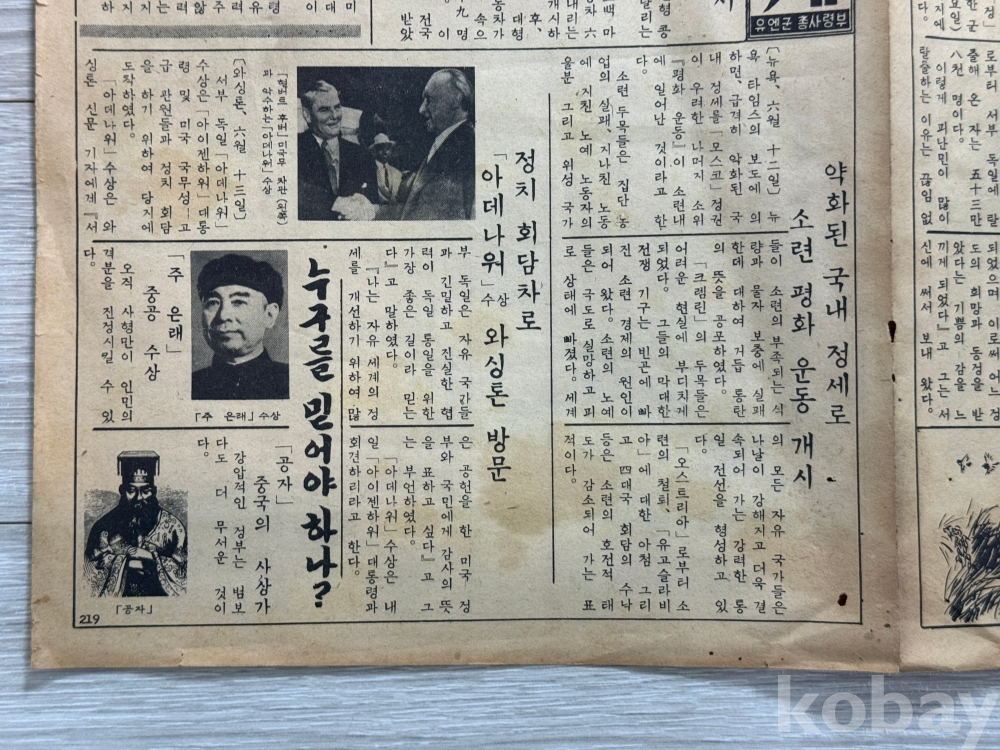 유엔군 총사령부
약화된 국내 정세로
소련 평화 운동 개시
(뉴욕, 六월 十二일) 뉴
욕 타임스의 보도에 의
하면, 급격히 악화된 국
내 정세를 「모스코」정권
이 우려한 나머지 소위
『평화 운동』이 소련내
에 일어난 것이라고 한
다。
소련 두목들은 집단 농
업의 실패, 지나친 노동
에 지친 노예 노동자의
울분 그리고 위성 국가
들이 소련의 부족되는 식
량과 물자 보충에 실패
한데 대하여 거듭 통탄
의 뜻을 공포하였다。
「크렘린」의 두목들은
어려운 현실에 부디치게
되었다。그들의 막대한
전쟁 기구는 빈곤에 빠
진 소련 경제의 원인이
되어 왔다。소련의 노예
들은 극도로 실망하고 피
로 상태에 빠졌다。세계
의 모든 자유 국가들은
나날이 강해지고 더욱 결
속되어 가는 강력한 통
일 전선을 형성하고 있
다。
「오스트리아」로부터 소
련의 철퇴, 「유고슬라비
아」에 대한 아첨 그리
고 四대국 회담의 수낙
등은 소련의 호전적 태
도가 감소되어 가는 표
적이다。
정치 회담차로
「아데나워」수상 와싱톤 방문
「헐버트 후버」미국무 차관 (왼쪽)
과 악수하는 「아데나워」수상
(와싱톤, 六월 十三일)
서부 독일 「아데나워」
수상은 「아이젠하워」대통
령 및 미국 국무성 고
급 관원들과 정치 회담
을 하기 위하여 당지에
도착하였다。
「아데나워」수상은 와
싱톤 신문 기자에게 『서
부 독일은 자유 국가들
과 긴밀하고 진실한 협
력이 독일 통일을 위한
가장 좋은 길이라 믿는
다』고 말하였다。
『나는 자유 세계의 정
세를 개선하기 위하여 많
은 공헌을 한 미국 정
부와 국민에게 감사의 뜻
을 표하고 싶다』고 그
는 부언하였다。
「아데나워」수상은 내
일 「아이젠하워」대통령과
회견하리라고 한다。
누구를 믿어야 하나?
「주 은래」수상
「주 은래」
중공 수상
오직 사형만이 인민의
격분을 진정시킬 수 있
다。
「공자」
중국의 사상가
강압적인 정부는 범보
다도 더 무서운 것이
다。
「공자」
219
kobay